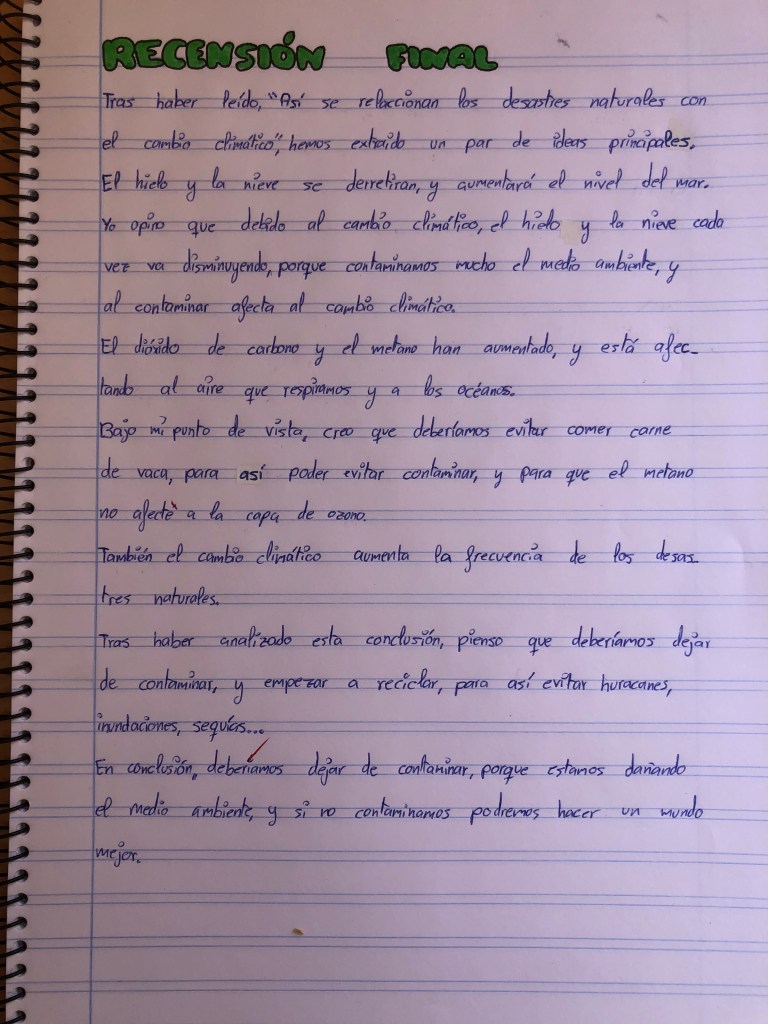 RECENSIÓN FINAL
Tras haber leído, "Así se relaccionan los desastres naturales con
el cambio climático", hemos extraído un par de ideas principales.
El hielo y la nieve se derretiran, y aumentará el nivel del mar.
Yo opino que debido al cambio climático, el hielo y la nieve cada
vez va disminuyendo, porque contaminamos mucho el medio ambiente, y
al contaminar afecta al cambio climático.
El dióxido de carbono y el metano han aumentado, y está afec-
tando al aire que respiramos y a los océanos.
Bajo mi punto de vista, creo que deberíamos evitar comer carne
de vaca, para así poder evitar contaminar, y para que el metano
no afecte a la capa de ozono.
También el cambio climático aumenta la frecuencia de los desas-
tres naturales.
Tras haber analizado esta conclusión, pienso que deberíamos dejar
de contaminar, y empezar a reciclar, para así evitar huracanes,
inundaciones, sequías...
En conclusión, deberíamos dejar de contaminar, porque estamos dañando
el medio ambiente, y si no contaminamos podremos hacer un mundo
mejor.